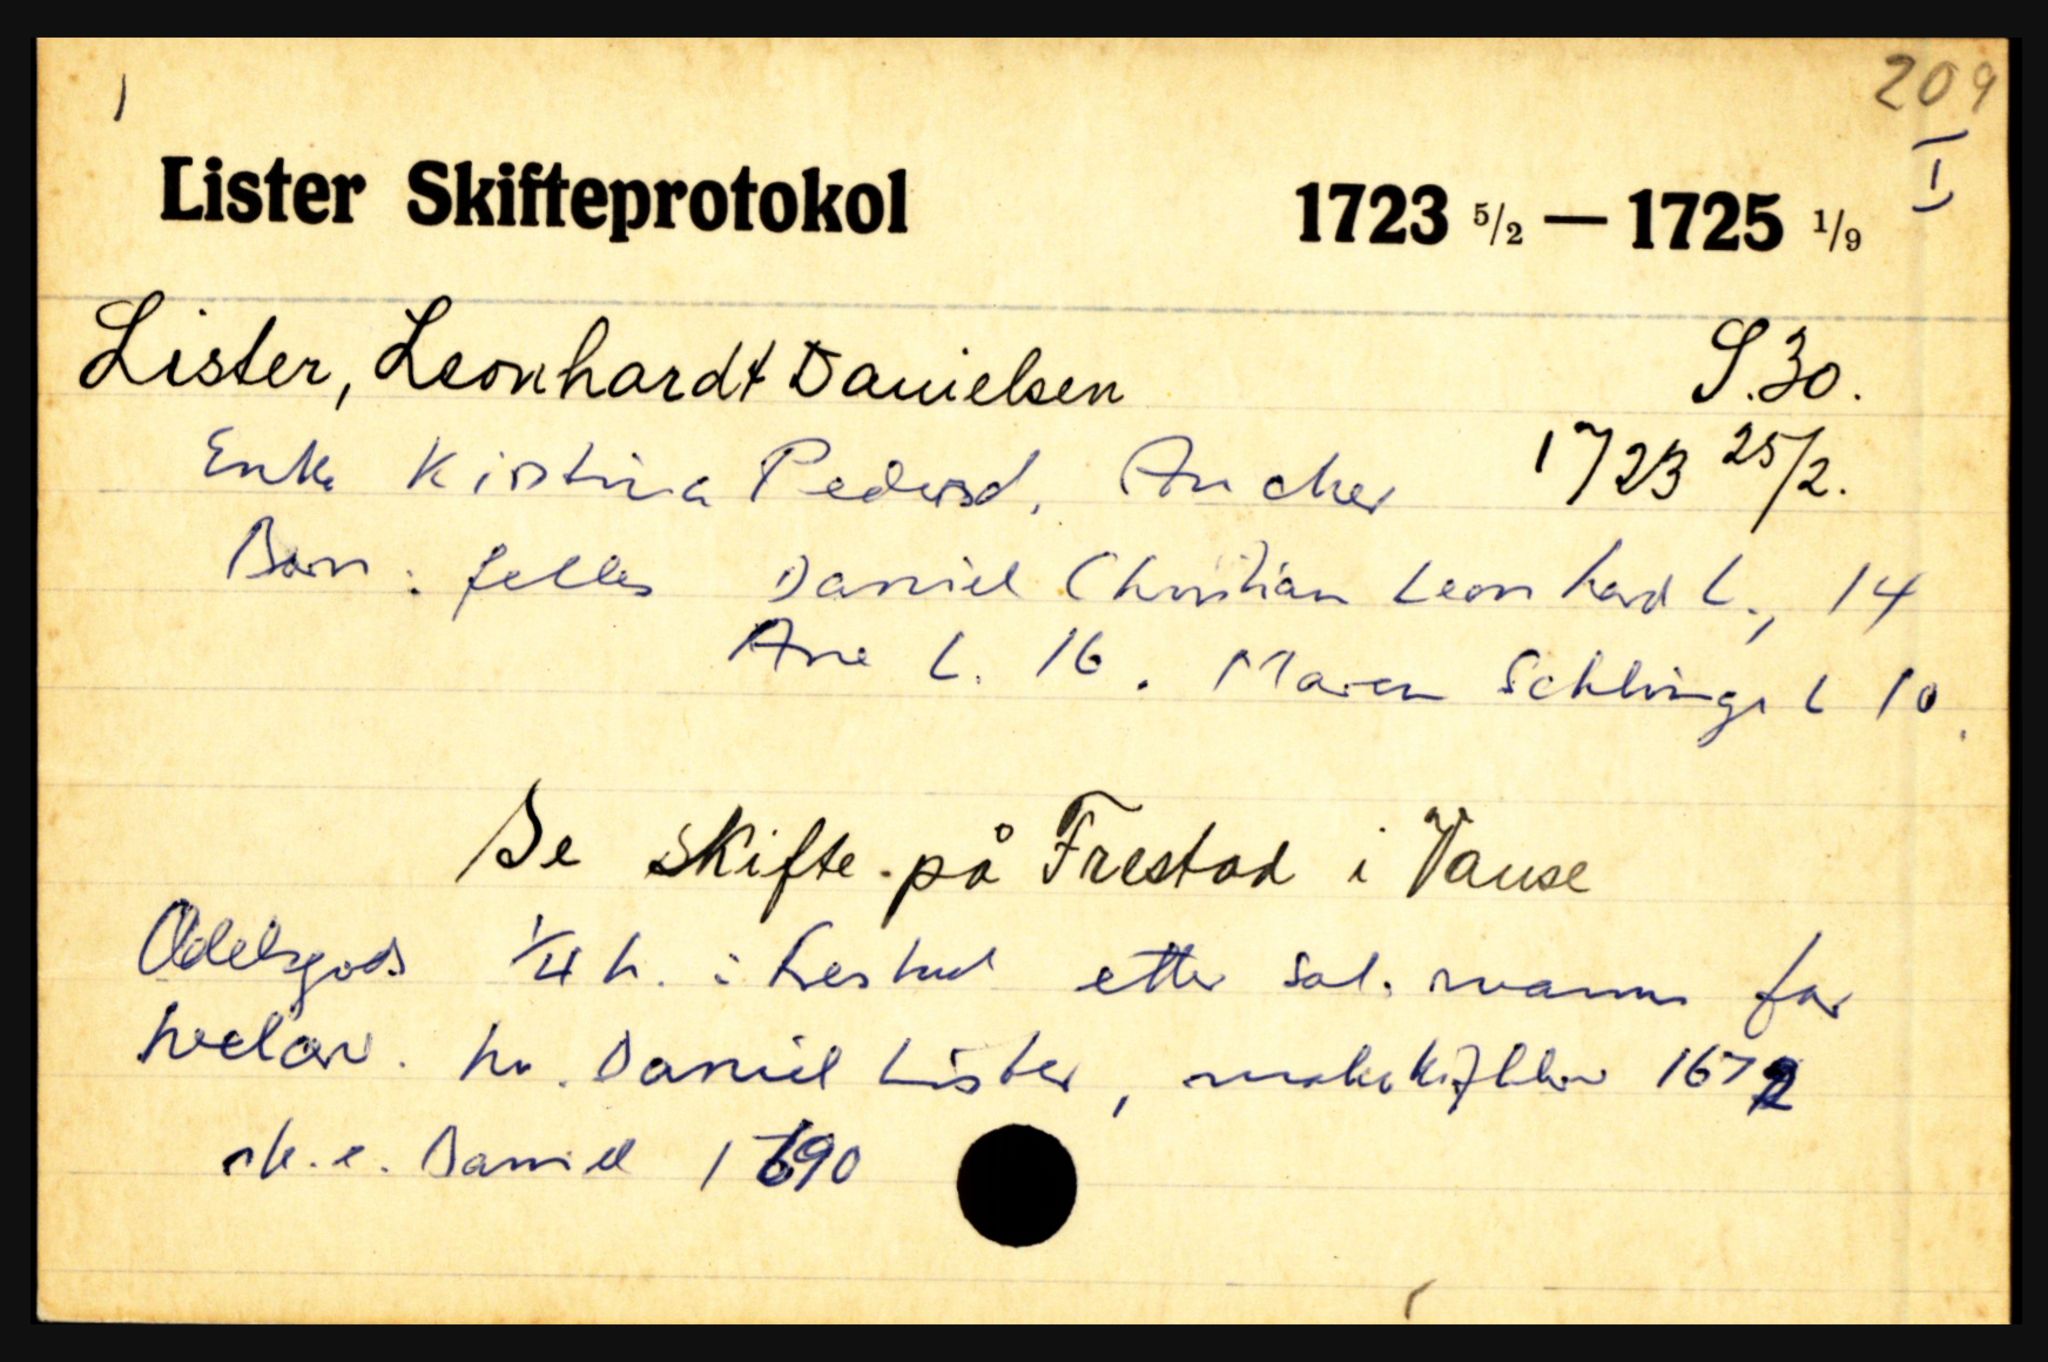 1
209
I
Lister Skifteprotokol 1723 5/2 — 1725 1/9
Lister, Leonhardt Danielsen S.30.
Enke Kistina Pedersd. Ancher 1723 25/2.
Barn: felles Daniel Christian Leonhard L., 14
Ane L. 16. Maren L 10.
Se skifte på Frestad i Vanse
Odelsgods 1/4 h. i Frestad etter sal. manns far
velærv. hr. Daniel Lister, makeskifte 1672
sk.e. Daniel 1690